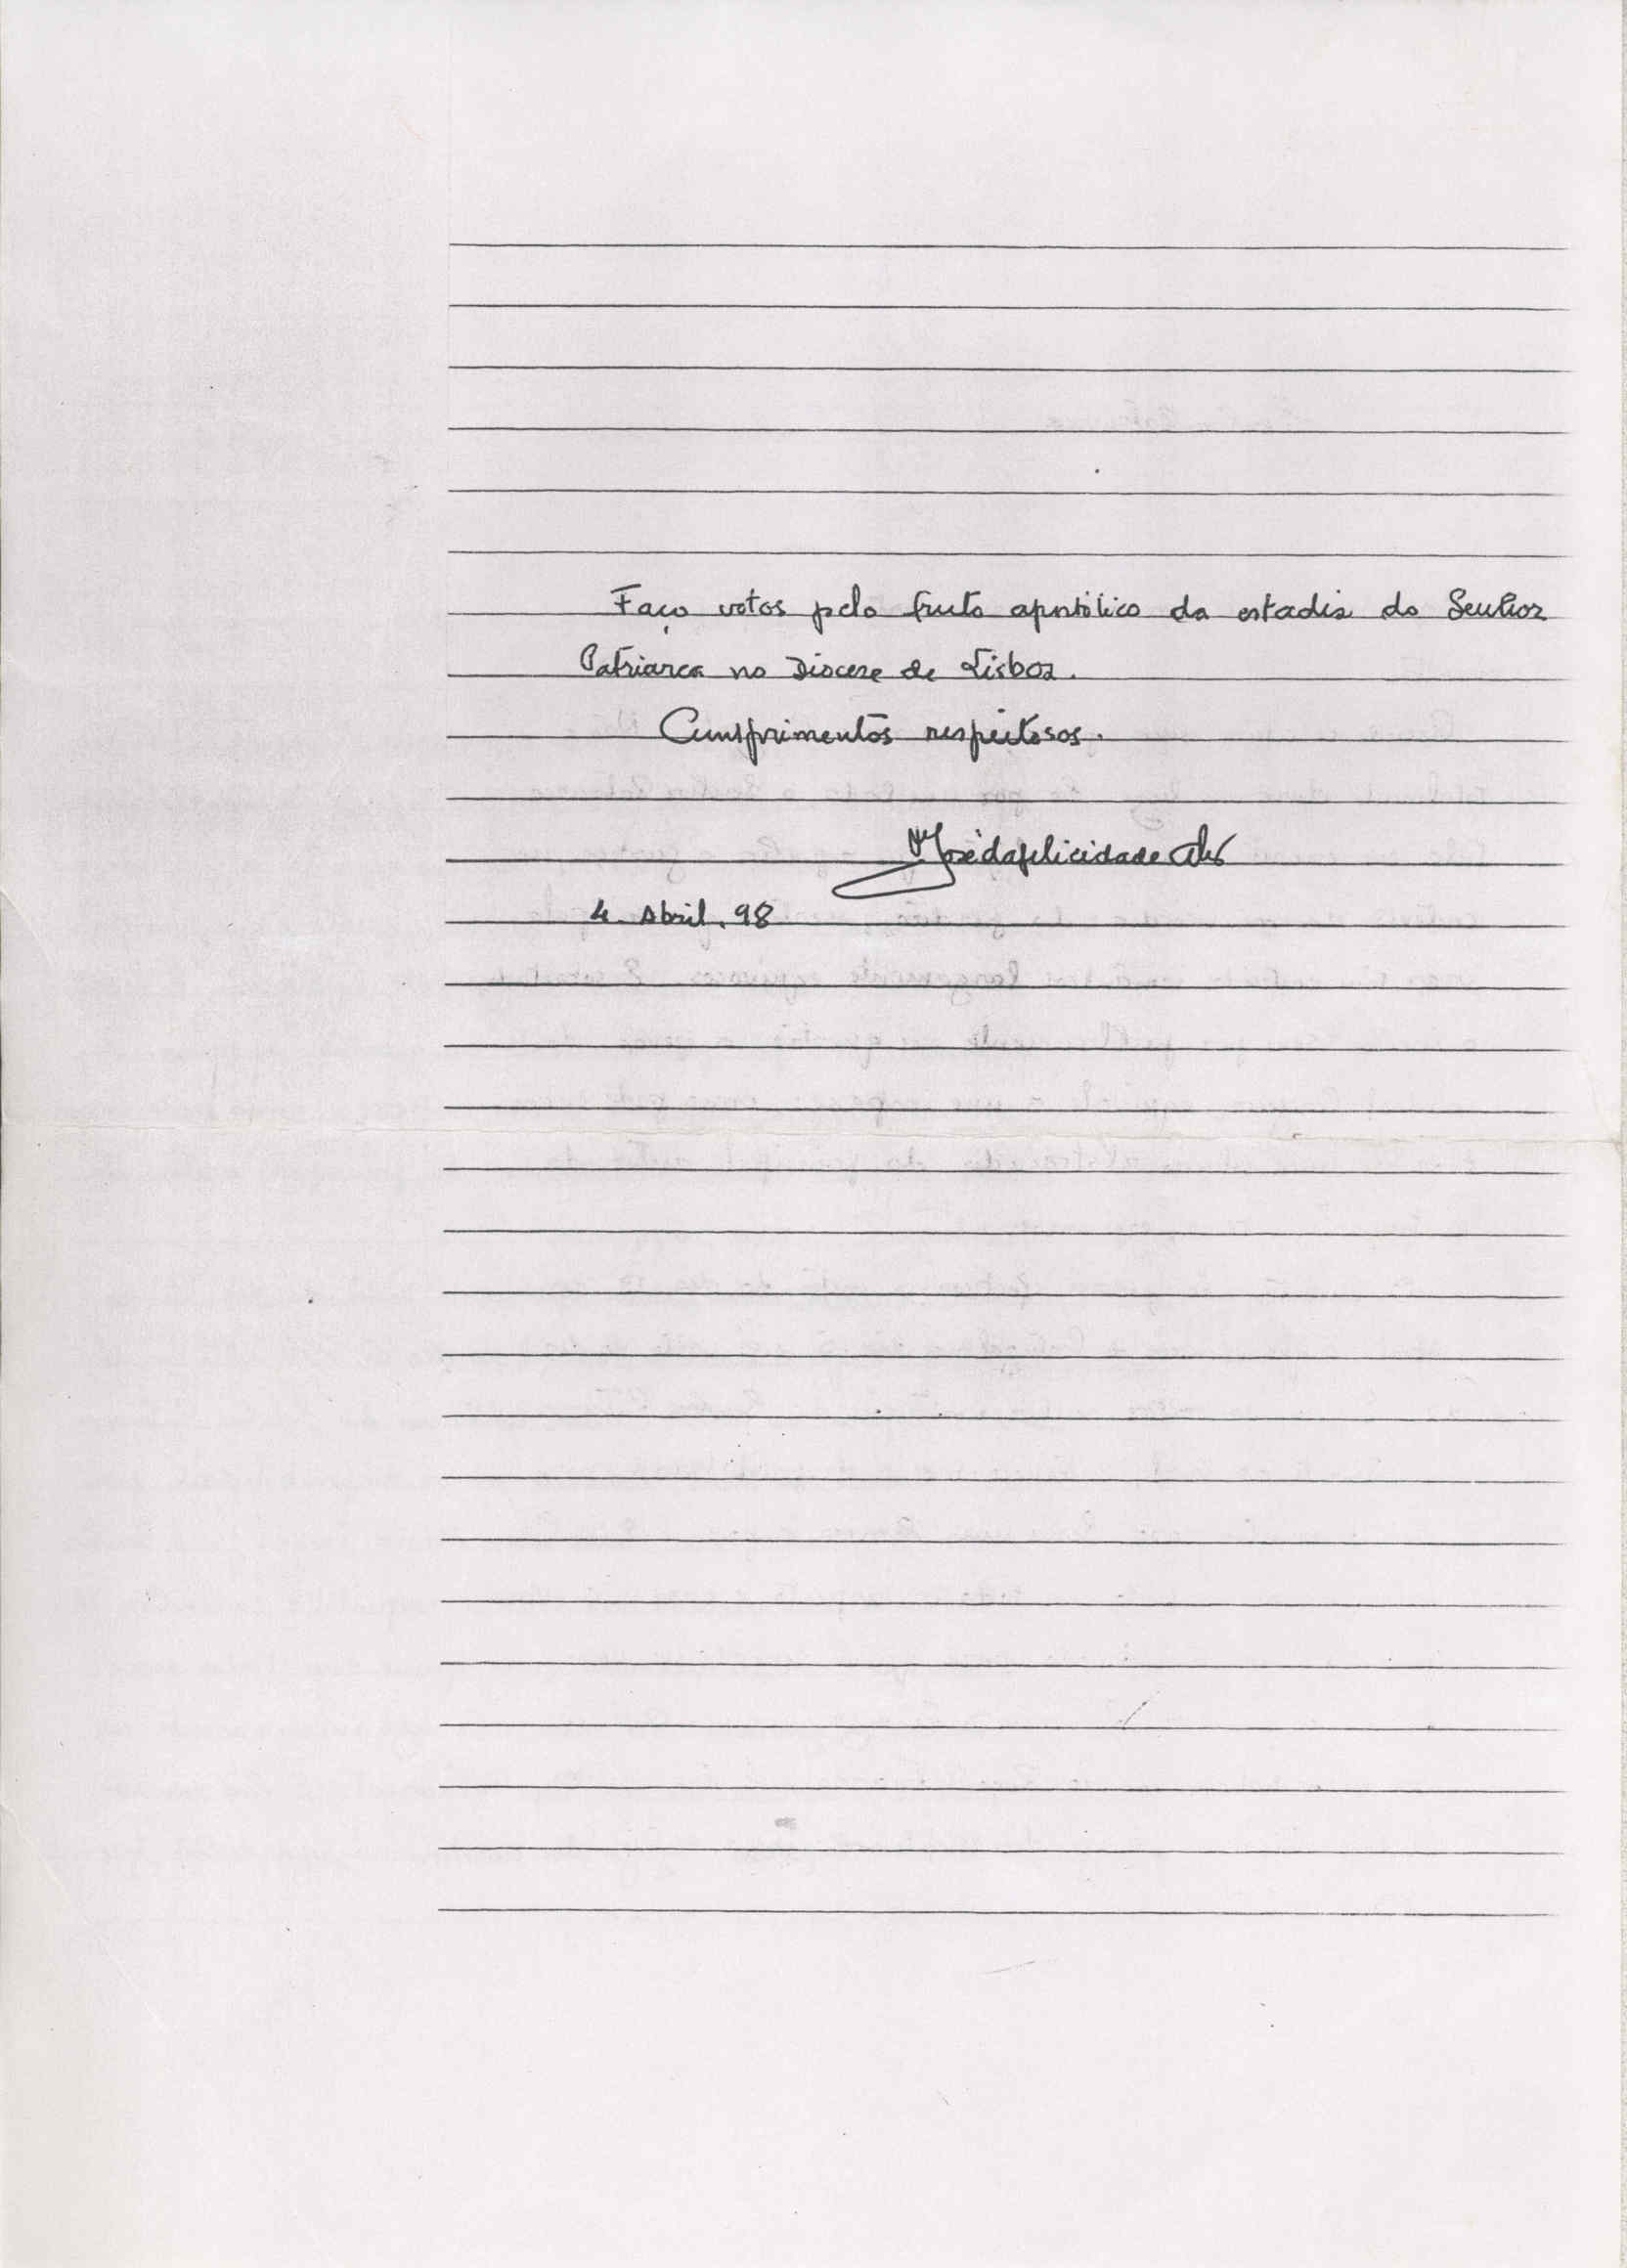 Faço votos pelo fruto apostólico da estadia do Senhor
Patriarca na Diocese de Lisboa.
Cumprimentos respeitosos.
José da felicidade Alves
4. Abril. 98